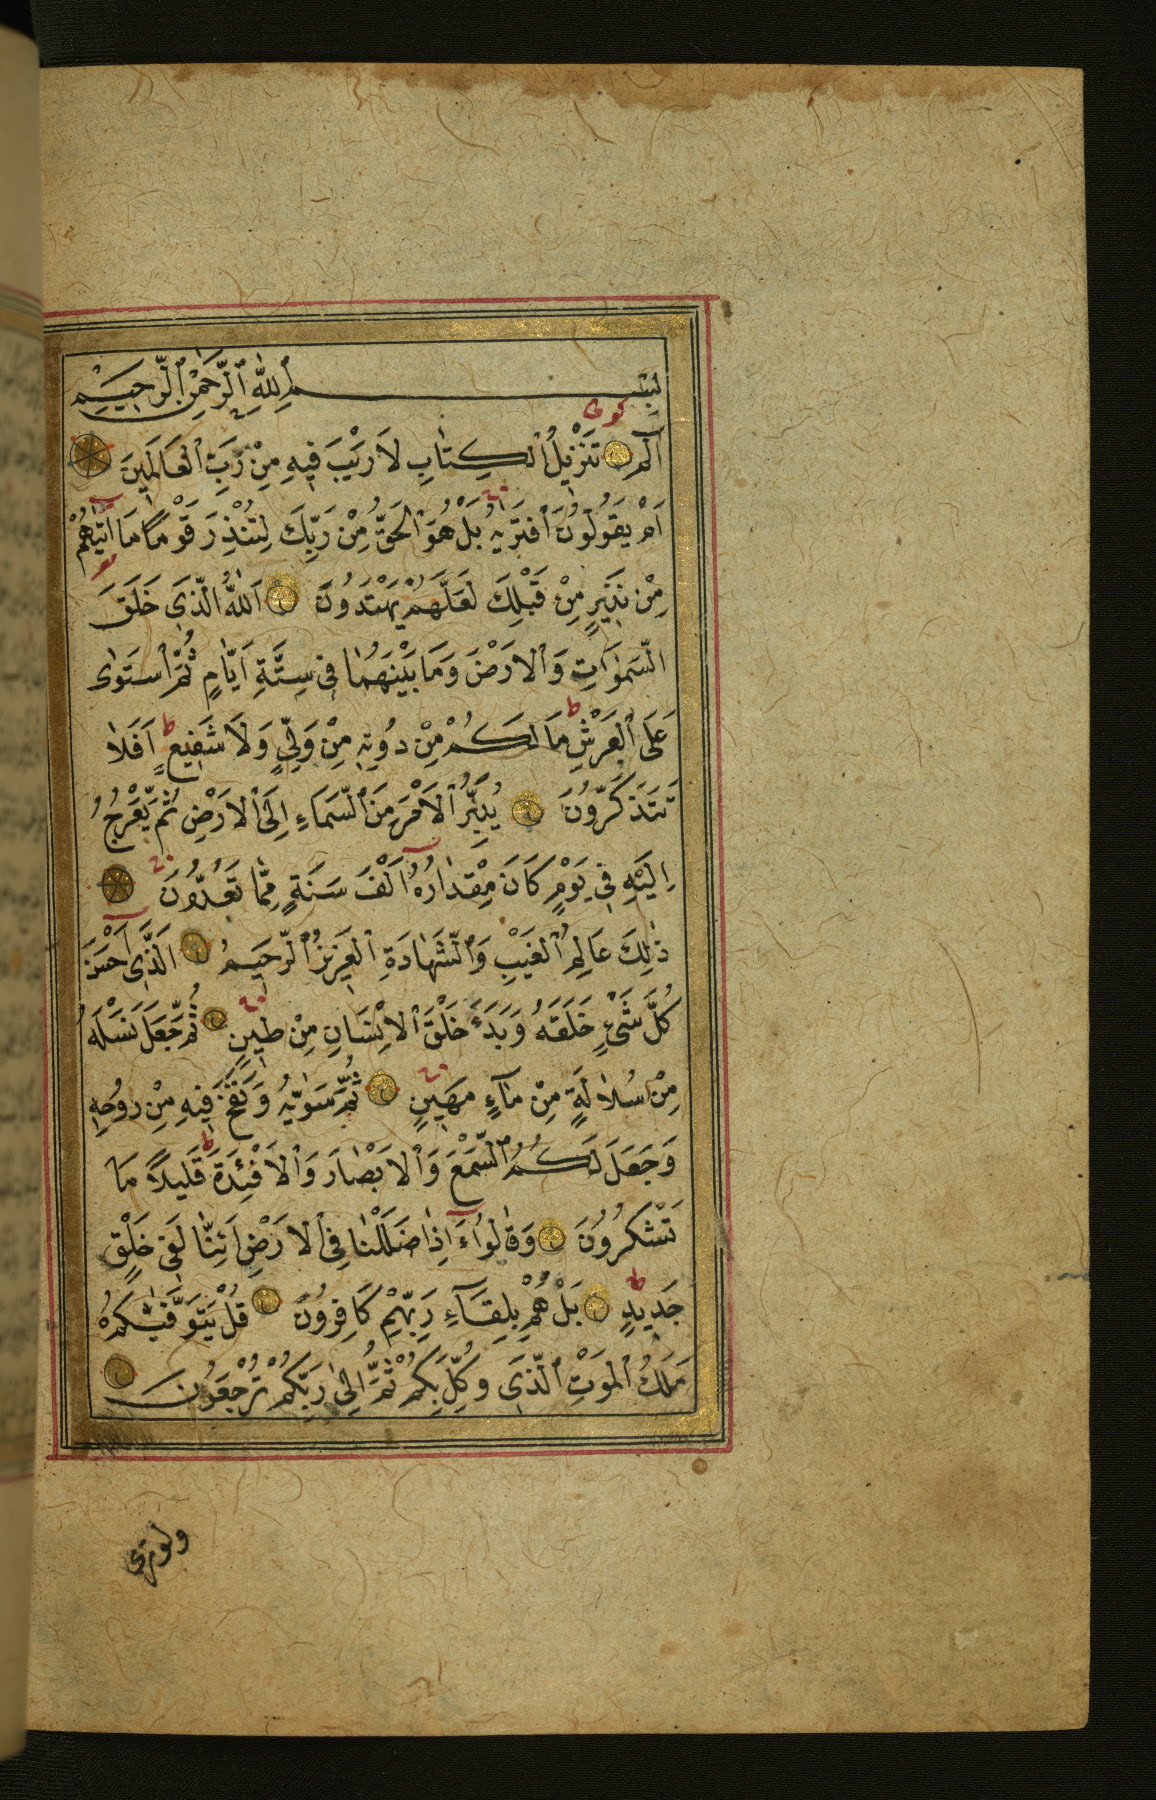 بِسْمِ ٱللّٰهِ ٱلرَّحْمٰنِ ٱلرَّحِيمِ
كوفى
الٓمٓ تَنْزِيلُ ٱلْكِتَابِ لَا رَيْبَ فِيهِ مِنْ رَبِّ ٱلْعَالَمِينَ
اَمْ يَقُولُونَ ٱفْتَرٰيهُ بَلْ هُوَ ٱلْحَقُّ مِنْ رَبِّكَ لِتُنْذِرَ قَوْمًا مَا اَتٰيهُمْ
مِنْ نَذِيرٍ مِنْ قَبْلِكَ لَعَلَّهُمْ يَهْتَدُونَ اَللّٰهُ الَّذِى خَلَقَ
السَّمٰوَاتِ وَٱلْاَرْضَ وَمَا بَيْنَهُمَا فِى سِتَّةِ اَيَّامٍ ثُمَّ ٱسْتَوٰى
عَلَى ٱلْعَرْشِ ط مَا لَكُمْ مِنْ دُونِهِ مِنْ وَلِىٍّ وَلَا شَفِيعٍ ط اَفَلَا
تَتَذَكَّرُونَ يُدَبِّرُ ٱلْاَمْرَ مِنَ ٱلسَّمَاءِ اِلَى ٱلْاَرْضِ ثُمَّ يَعْرُجُ
اِلَيْهِ فِى يَوْمٍ كَانَ مِقْدَارُهُ اَلْفَ سَنَةٍ مِمَّا تَعُدُّونَ
ذٰلِكَ عَالِمُ ٱلْغَيْبِ وَٱلشَّهَادَةِ ٱلْعَزِيزُ ٱلرَّحِيمُ الَّذِى اَحْسَنَ
كُلَّ شَىْءٍ خَلَقَهُ وَبَدَءَ خَلْقَ ٱلْاِنْسَانِ مِنْ طِينٍ ثُمَّ جَعَلَ نَسْلَهُ
مِنْ سُلَالَةٍ مِنْ مَآءٍ مَهِينٍ ثُمَّ سَوّٰيهُ وَنَفَخَ فِيهِ مِنْ رُوحِهِ
وَجَعَلَ لَكُمُ ٱلسَّمْعَ وَٱلْاَبْصَارَ وَٱلْاَفْئِدَةَ ط قَلِيلًا مَا
تَشْكُرُونَ وَقَالُوٓا ءَاِذَا ضَلَلْنَا فِى ٱلْاَرْضِ اَئِنَّا لَفِى خَلْقٍ
جَدِيدٍ ط بَلْ هُمْ بِلِقَآءِ رَبِّهِمْ كَافِرُونَ قُلْ يَتَوَفّٰيكُمْ
مَلَكُ ٱلْمَوْتِ ٱلَّذِى وُكِّلَ بِكُمْ ثُمَّ اِلٰى رَبِّكُمْ تُرْجَعُونَ
ولو ترى